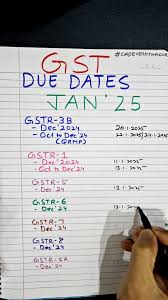 GST
DUE DATES
JAN'25
GSTR-3B
- Dec'2024 20.1.2025
- Oct to Dec'24 22.1.2025/24.1.2025
(QRMP)
GSTR-1
- Dec'2024 11.1.2025
- Oct to Dec'24 13.1.2025
GSTR-5
- Dec'24 13.1.2025
GSTR-6
- Dec'24 13.1.202
GSTR-7
- Dec'24
GSTR-8
- Dec'24
GSTR-5A
- Dec'24